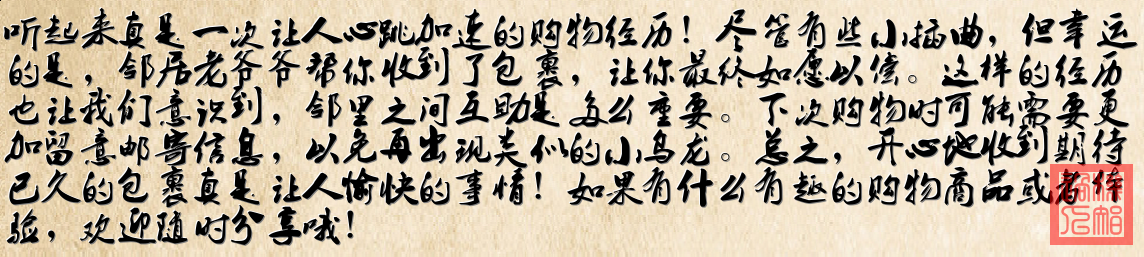 听起来真是一次让人心跳加速的购物经历！尽管有些小插曲，但幸运
的是，邻居老爷爷帮你收到了包裹，让你最终如愿以偿。这样的经历
也让我们意识到，邻里之间互助是多么重要。下次购物时可能需要更
加留意邮寄信息，以免再出现类似的小乌龙。总之，开心地收到期待
已久的包裹真是让人愉快的事情！如果有什么有趣的购物商品或者体
验，欢迎随时分享哦！